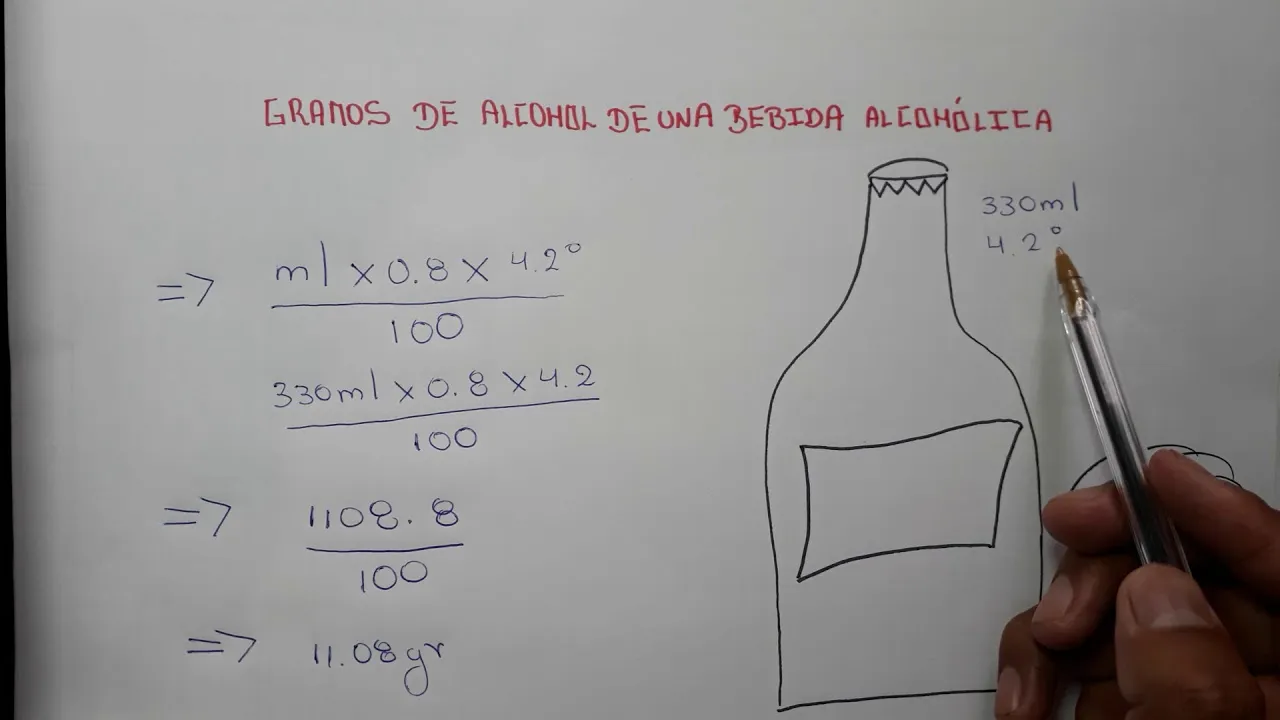 GRAMOS DE ALCOHOL DE UNA BEBIDA ALCOHÓLICA
330ml
4.2°
=> ml x 0.8 x 4.2°
100
330ml x 0.8 x 4.2
100
=> 1108.8
100
=> 11.08gr